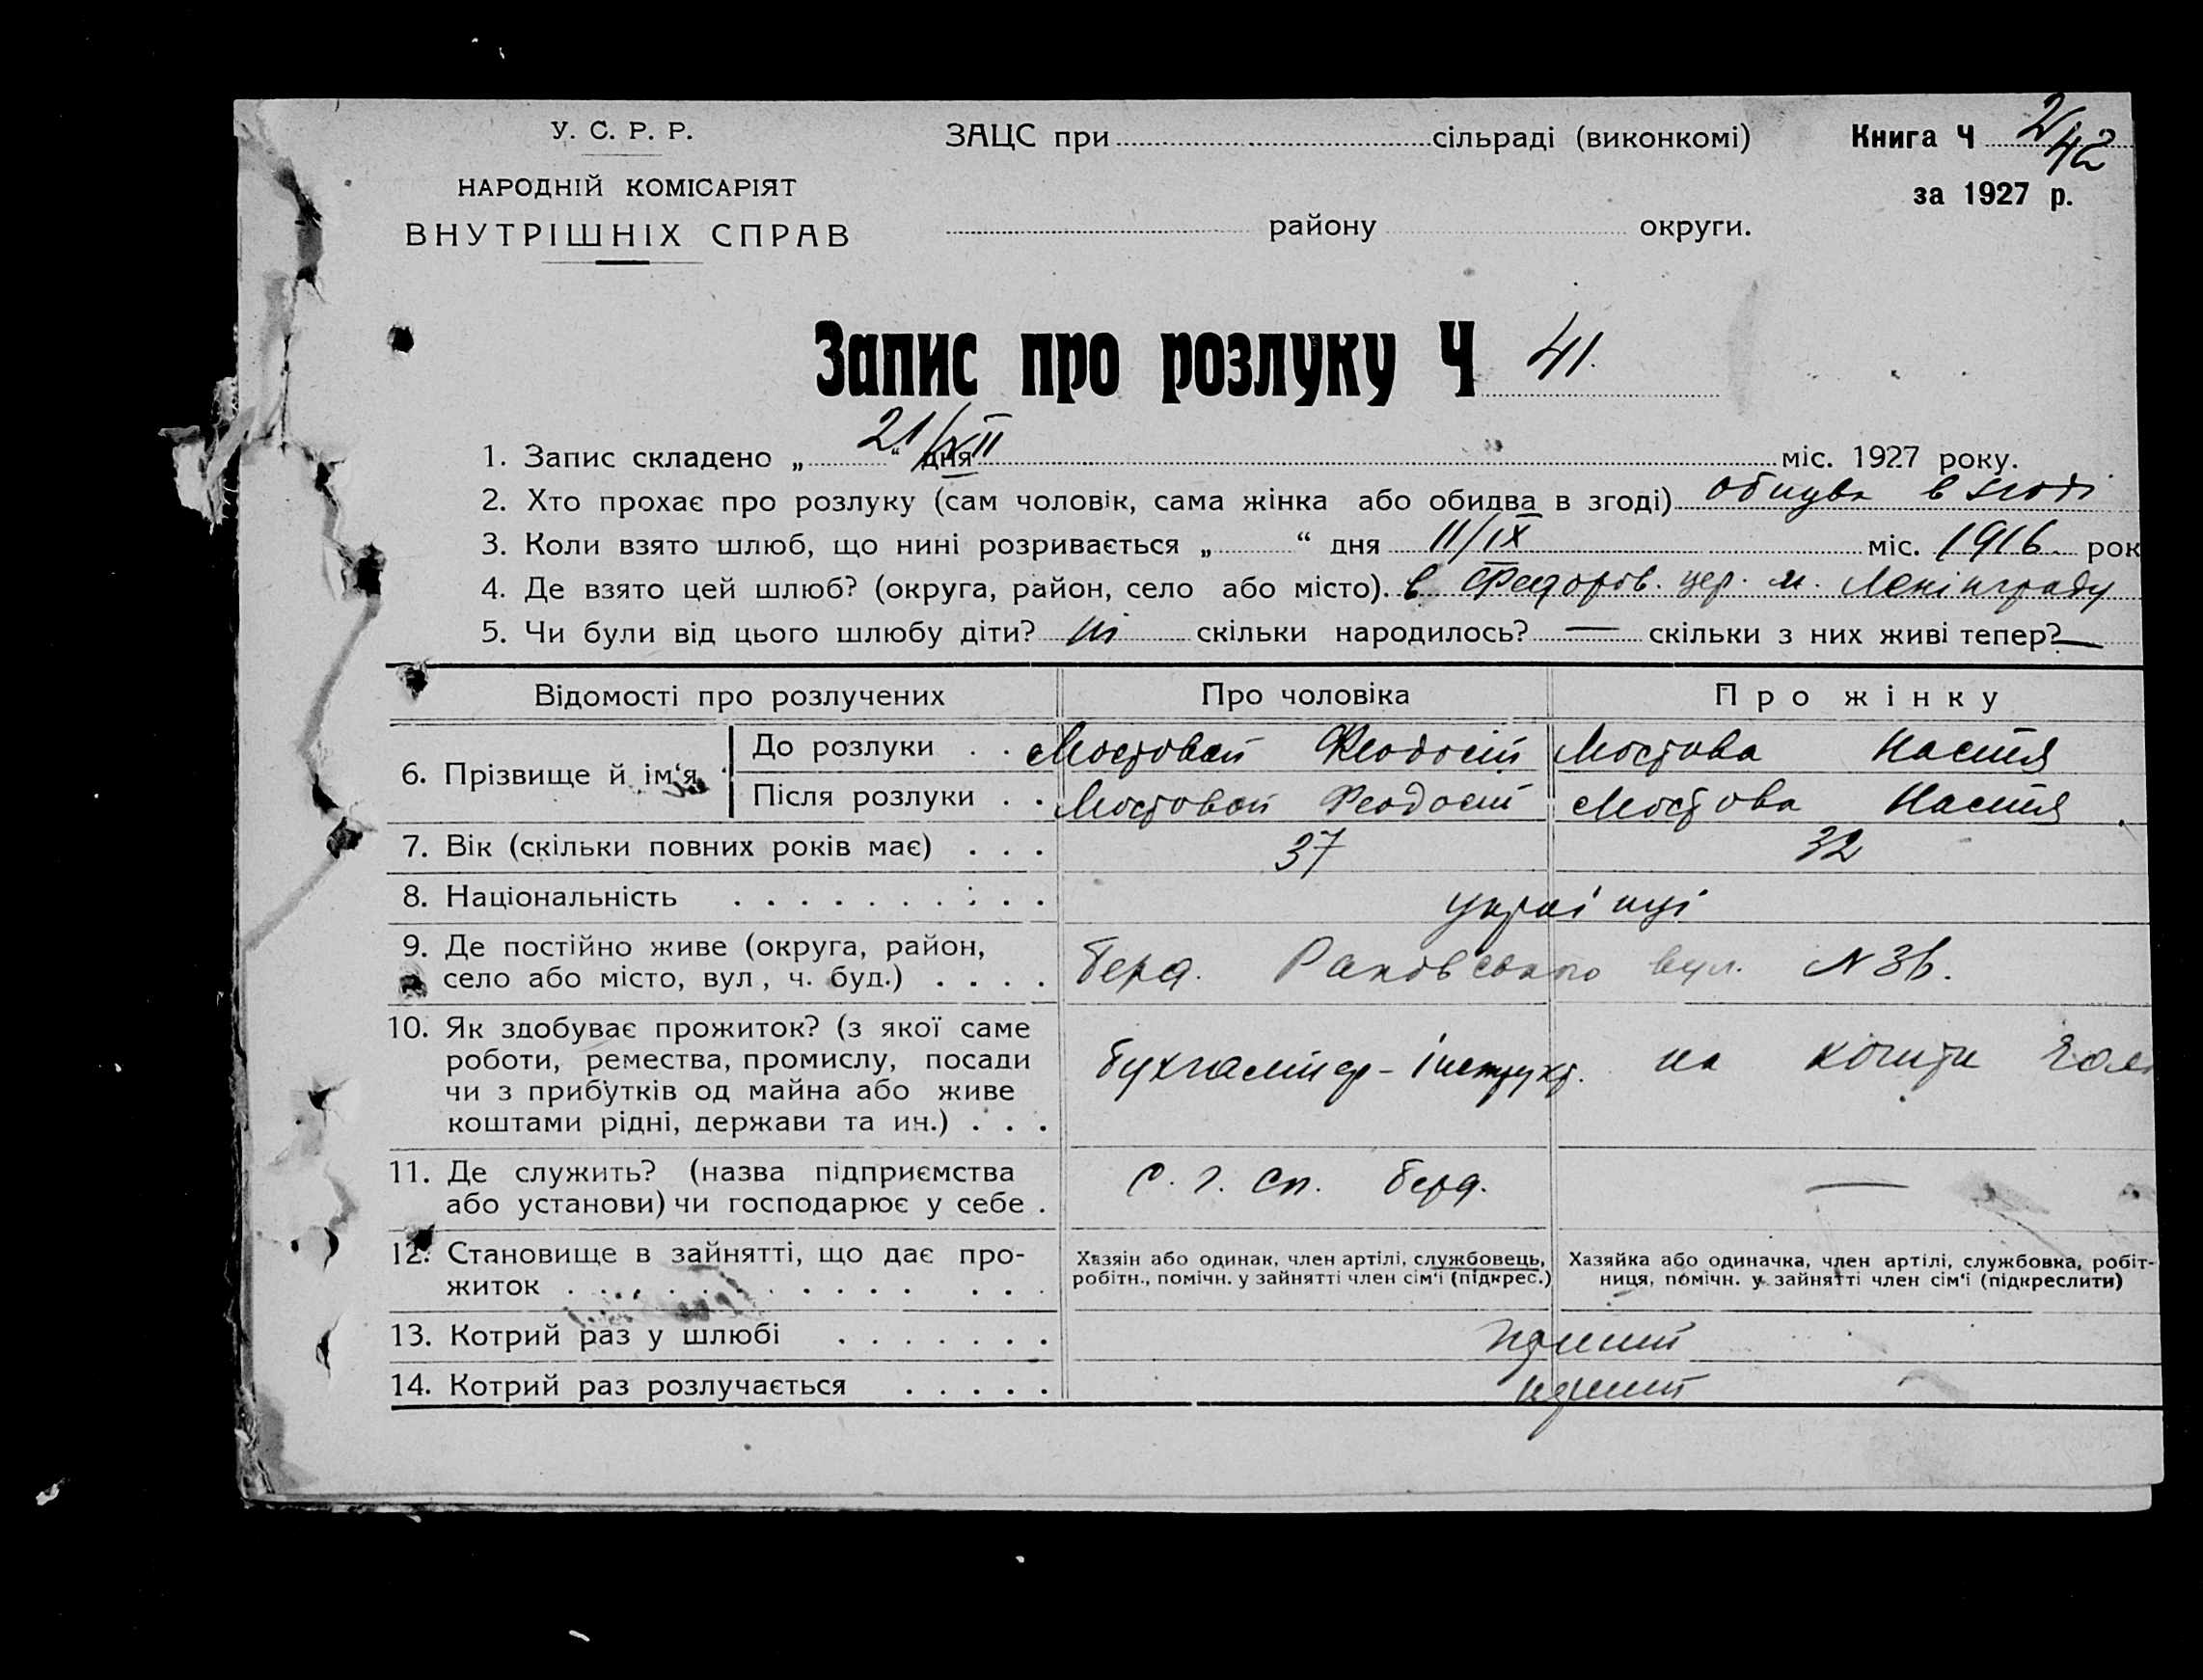 У. С. Р. Р.
НАРОДНІЙ КОМІСАРІЯТ
ВНУТРІШНІХ СПРАВ
ЗАЦС при сільраді (виконкомі)
району округи.
Книга Ч 2/42
за 1927 р.
Запис про розлуку Ч 41.
1. Запис складено „ 21/XII “ дня міс. 1927 року.
2. Хто прохає про розлуку (сам чоловік, сама жінка або обидва в згоді) обидва в згоді
3. Коли взято шлюб, що нині розривається „ “ дня 11/IX міс. 1916 рок
4. Де взято цей шлюб? (округа, район, село або місто). в Федоров. цер. м. Ленінграду
5. Чи були від цього шлюбу діти? ні скільки народилось? — скільки з них живі тепер? —
Відомості про розлучених Про чоловіка Про жінку
6. Прізвище й ім‘я
До розлуки . . Мостовай Феодосій Мостова Настя
Після розлуки . . Мостовой Феодосій Мостова Настя
7. Вік (скільки повних років має) . . . 37 32
8. Національність . . . . . . . . . . українці
9. Де постійно живе (округа, район,
село або місто, вул, ч. буд.) . . . . Берд. Раковського вул. N
10. Як здобуває прожиток? (з якої саме
роботи, ремества, промислу, посади
чи з прибутків од майна або живе
коштами рідні, держави та ин.) . . . бухгалтер-інструкт. на кошти
11. Де служить? (назва підприємства
або установи) чи господарює у себе . С. г. сп. Берд. —
12. Становище в зайнятті, що дає про-
житок . . . . . . . . . . . . .
Хазяїн або одинак, член артілі, службовець,
робітн., помічн. у зайнятті член сім‘ї (підкрес.)
Хазяйка або одиначка, член артілі, службовка, робіт-
ниця, помічн. у зайнятті член сім‘ї (підкреслити)
13. Котрий раз у шлюбі . . . . . . . перший
14. Котрий раз розлучається . . . . . перший